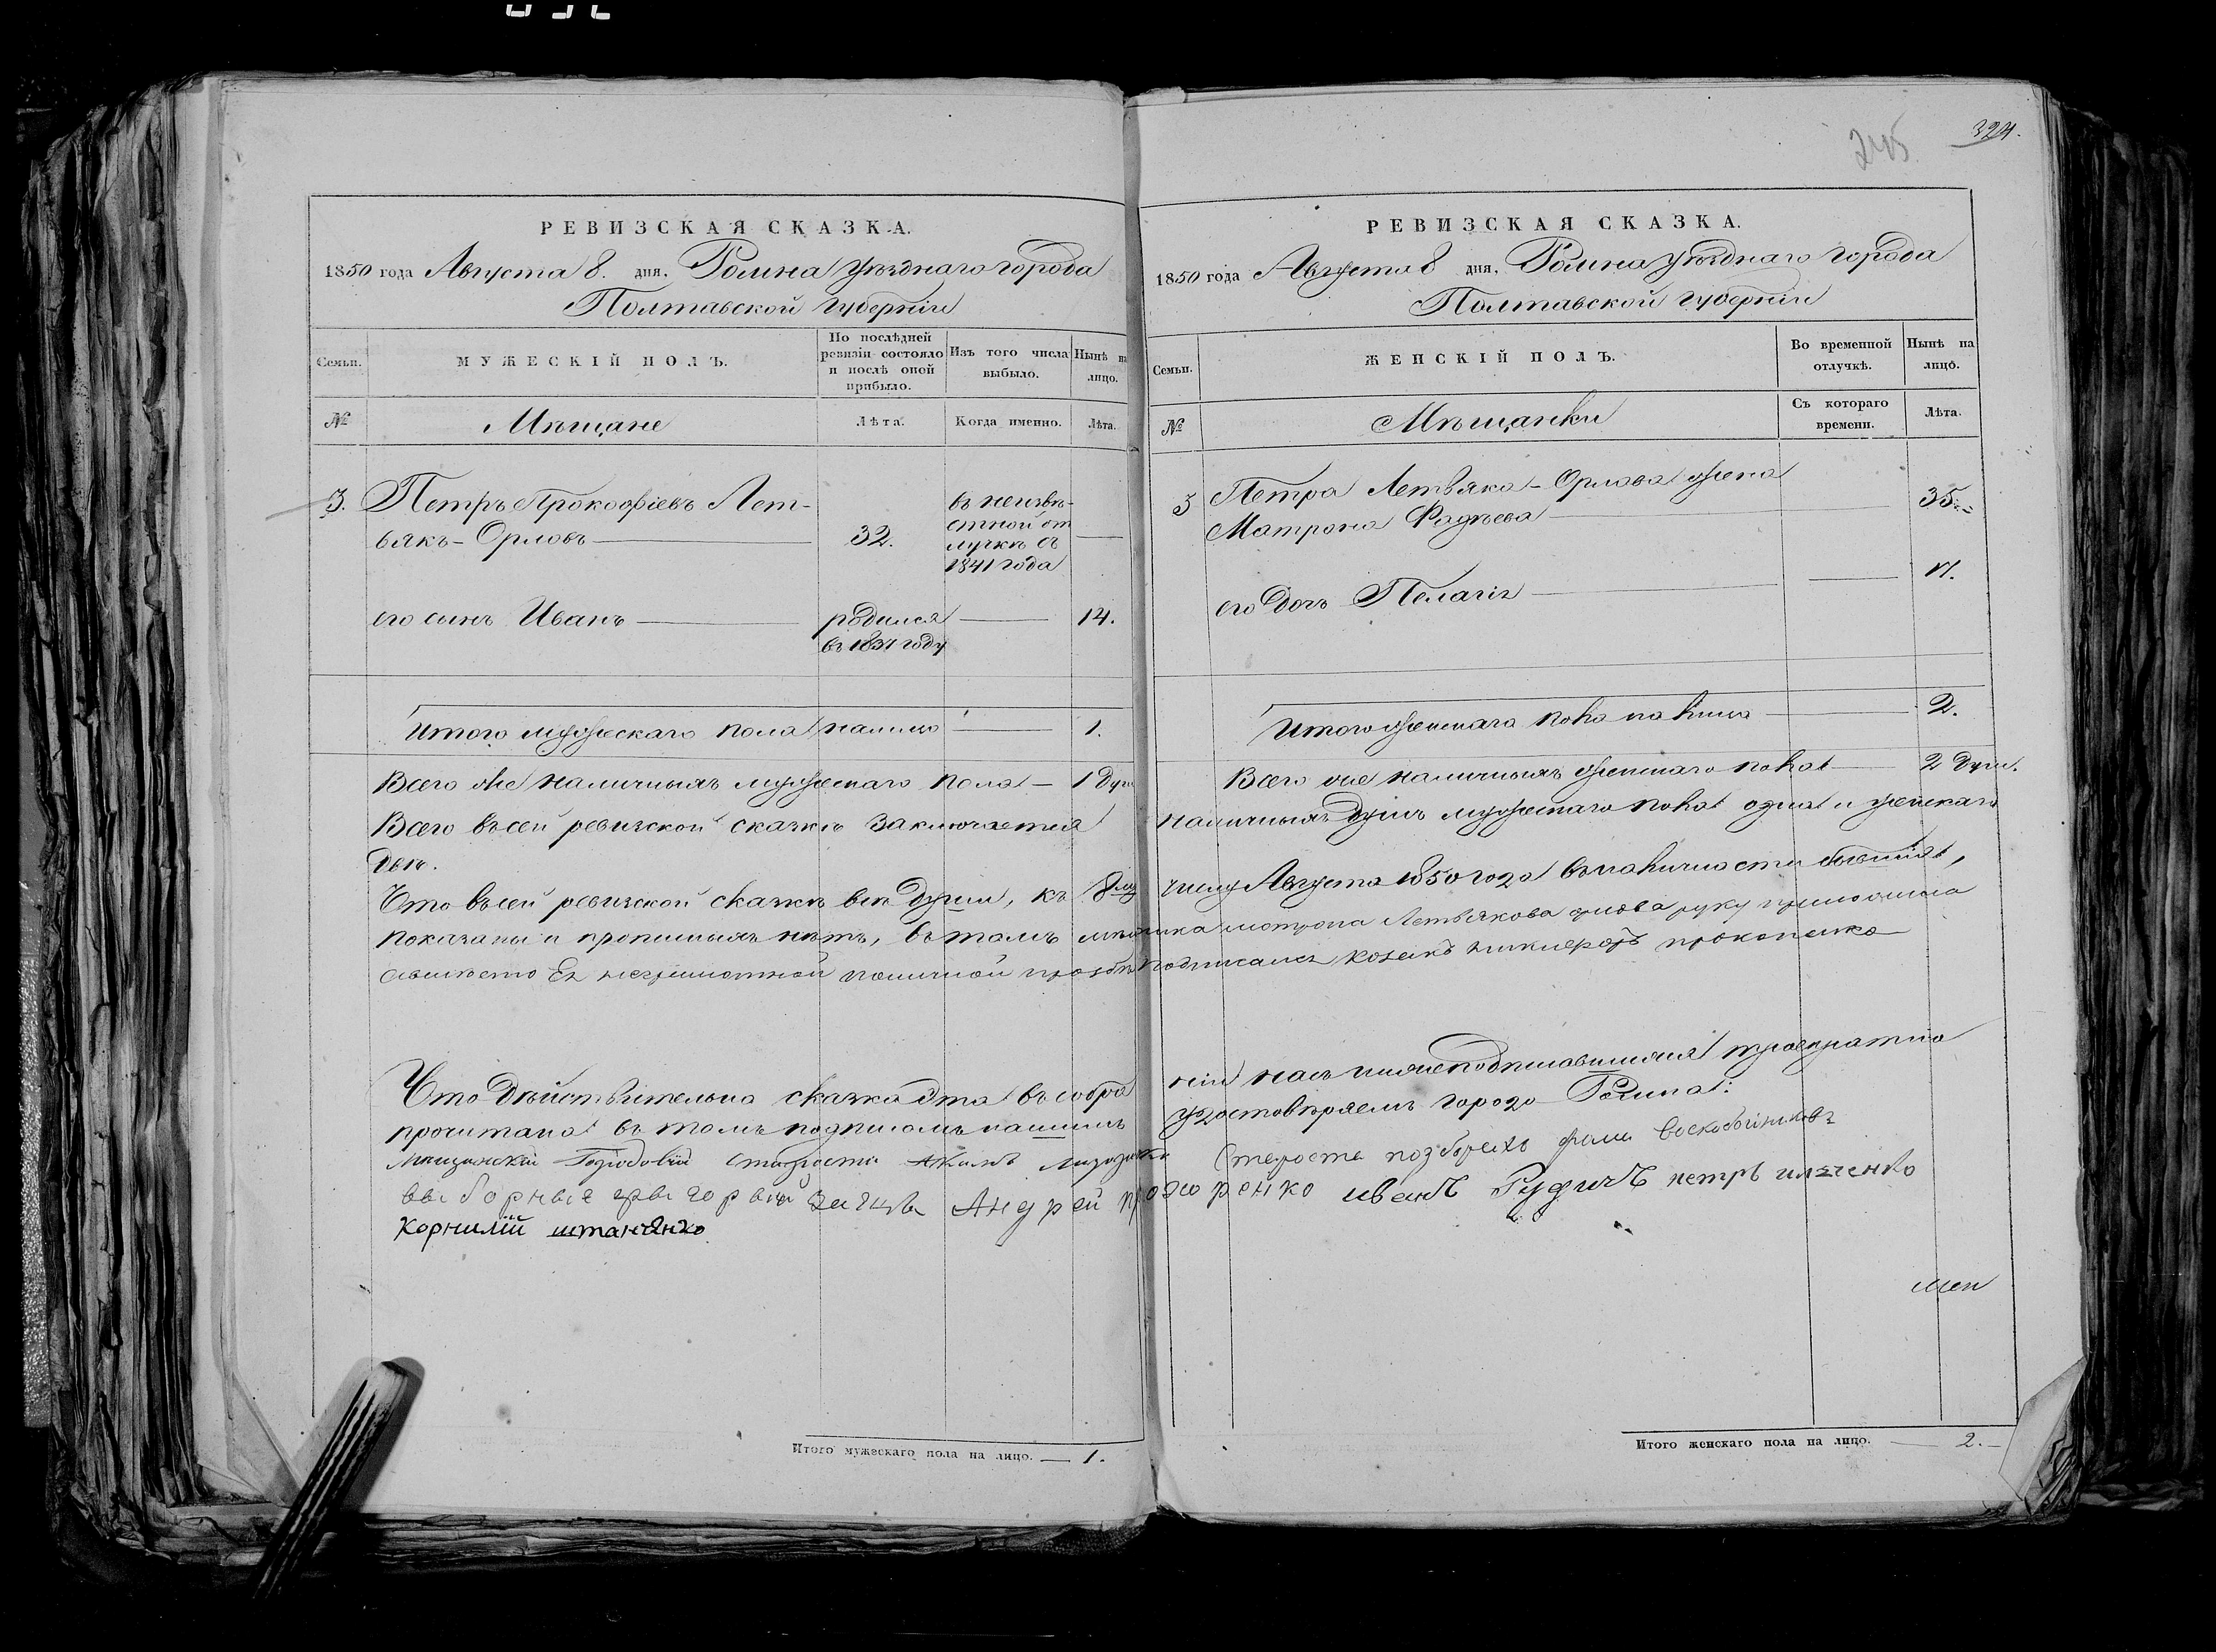 324.
245
РЕВИЗСКАЯ СКАЗКА.
1850 года Августа 8. дня. Ромна уѣзднаго города
Полтавской губерніи
Семьи.
МУЖЕСКІЙ ПОЛЪ.
По послѣдней ревизіи состояло и послѣ оной прибыло.
Изъ того числа выбыло.
Нынѣ на лицо.
№
Мѣщане
Лѣта.
Когда именно.
Лѣта.
3. Петръ Прокофіевъ Лет-
вякъ-Орловъ
32.
въ неизвѣ-
стной от
лучкѣ съ
1841 года
его сынъ Иванъ
родился
въ 1837 году
14.
Итого мужескаго пола налицо 1.
Всего же наличныхъ мужескаго пола 1 душ
Всего въ сей ревизской сказкѣ заключается
двѣ.
Что въ сей ревизской сказкѣ всѣ души, къ 8му
показаны и прописныхъ нѣтъ, въ томъ
неграмотной
Что дѣйствительно сказка эта въ собра
прочитана въ томъ подписомъ нашимъ
Мещанскій Городовій староста
выборные Заяцъ Андрей
Корнилій штанченко
Итого мужескаго пола на лицо. 1.
РЕВИЗСКАЯ СКАЗКА.
1850 года Августа 8 дня. Ромна уѣзднаго города
Полтавской губерніи
Семьи.
ЖЕНСКІЙ ПОЛЪ.
Во временной отлучкѣ.
Нынѣ на лицо.
№
Мѣщанки
Съ котораго времени.
Лѣта.
3 Петра Летвяка-Орлова жена
Матрона Фадѣева
35.
его дочь Пелагія
17.
Итого женскаго пола на лицо 2.
Всего же наличныхъ женскаго пола 2 душ.
наличныхъ душъ мужескаго пола одна и женскаго
числу Августа 1850 года въ наличности бывшія,
руку приложила
подписался козакъ
ніи насъ нижеподписавшихся троекратно
удостовѣряемъ городъ Ромна:
Староста
иванъ Рудичъ петръ
мен
Итого женскаго пола на лицо. 2.